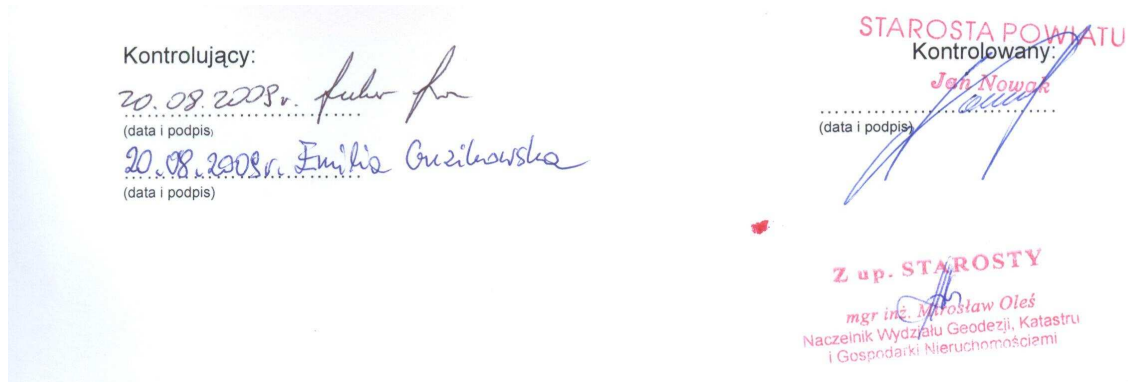 Kontrolujący:
20.08.2009r.
(data i podpis)
20.08.2009r. Emilia Guzikowska
(data i podpis)
STAROSTA POWIATU
Kontrolowany:
Jan Nowak
(data i podpis)
Z up. STAROSTY
mgr inż. Mirosław Oleś
Naczelnik Wydziału Geodezji, Katastru
i Gospodarki Nieruchomościami